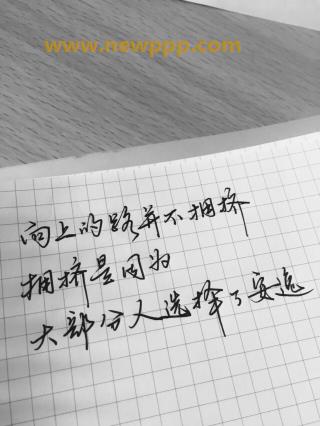 www.newppp.com
向上的路并不拥挤
拥挤是因为
大部分人选择了安逸